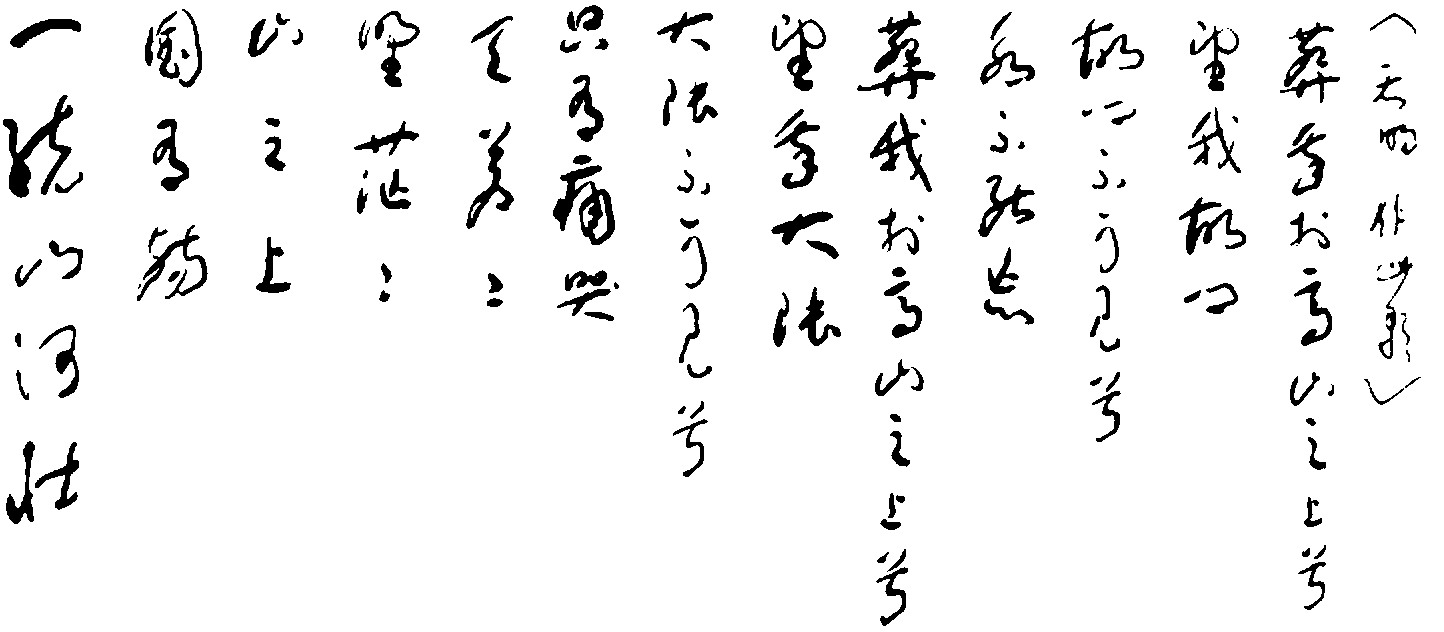 (天明作此歌)
葬我於高山之上兮
望我故鄉
故鄉不可見兮
永不能忘
葬我於高山之上兮
望我大陸
大陸不可見兮
只有痛哭
天蒼蒼
野茫茫
山之上
國有殤
一統山河壯